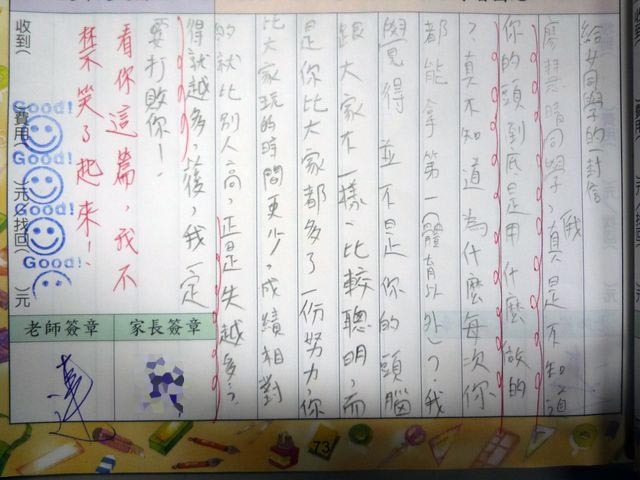 給女同學的一封信
同學,我真是不知道
你的頭到底是用什麼做的
?真不知道為什麼每次你
都能拿第一(體育以外)?我
覺得並不是你的頭腦
跟大家不一樣、比較聰明,而
是你比大家都多了一份努力,你
比大家玩的時間更少,成績相對
的就比別人高,正是失越多?
得就越多,以後,我一定
要打敗你!
看你這篇,我不
禁笑了起來!
Good!
Good!
Good!
Good!
收到( )費用( )元找回( )元
家長簽章
老師簽章
73